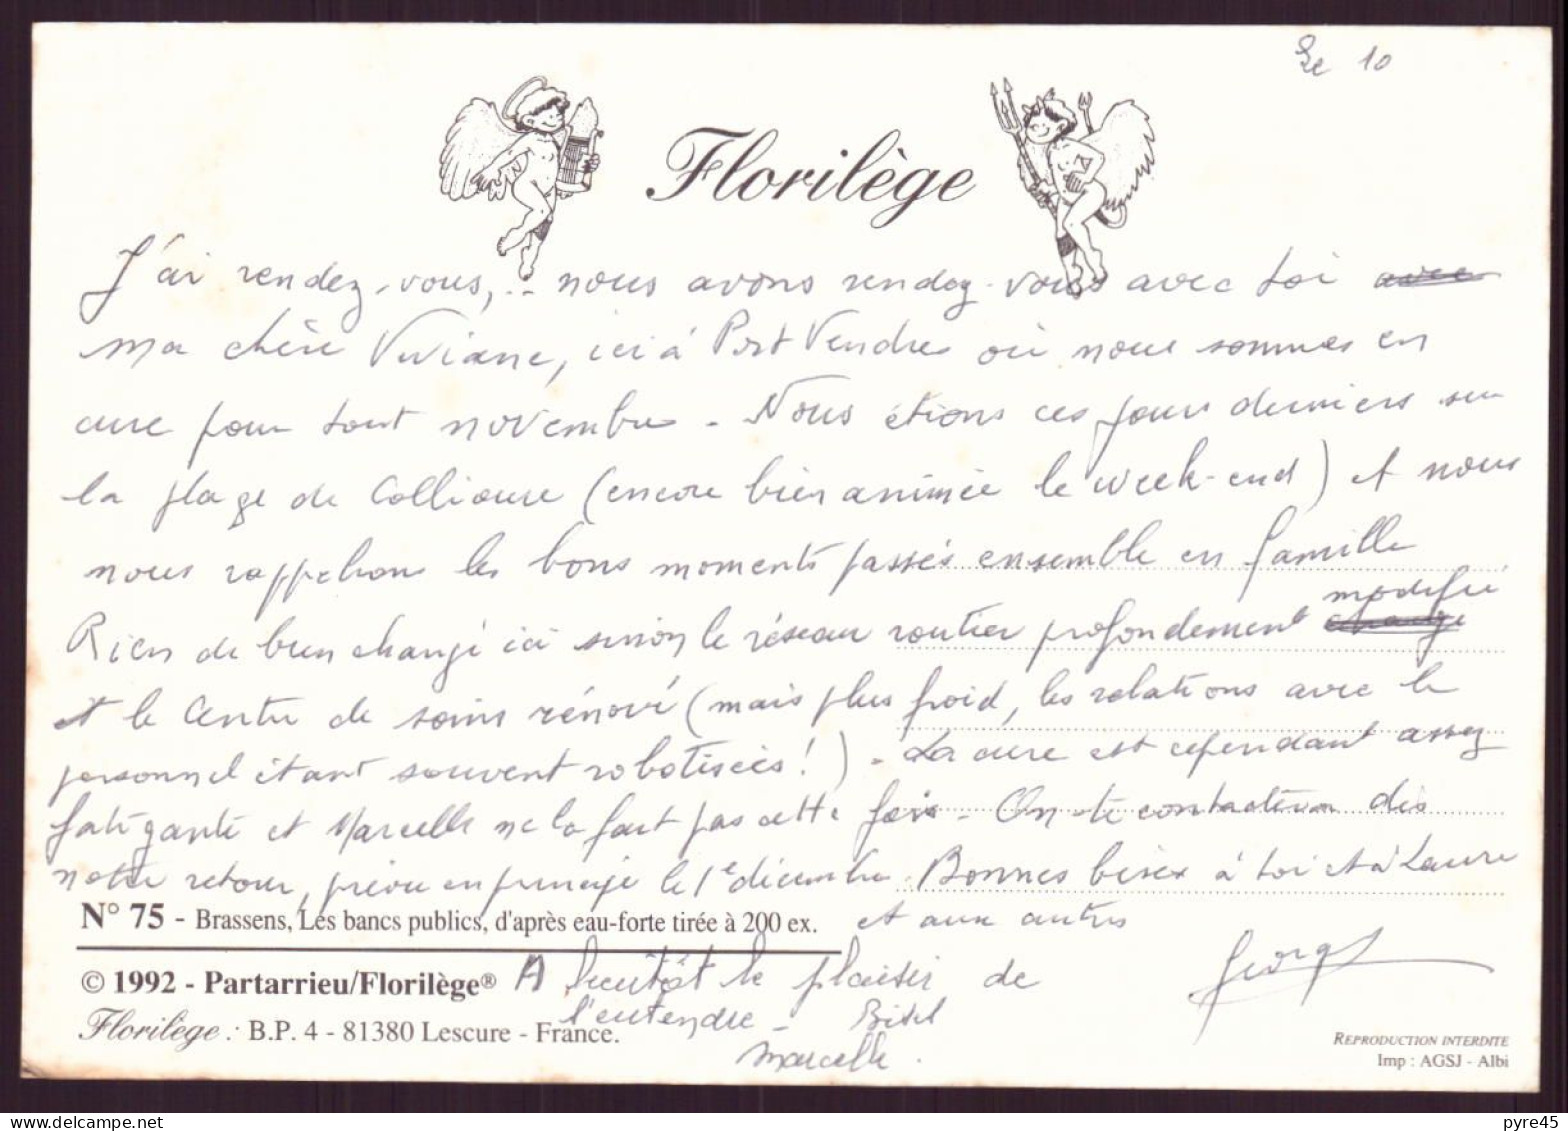 Le 10
Florilège
J'ai rendez-vous,... nous avons rendez-vous avec toi
ma chère Viviane, ici à Port Vendres où nous sommes en
cure pour tout novembre - Nous étions ces jours derniers sur
la plage de Collioure (encore bien animée le week-end) et nous
nous rappelions les bons moments passés ensemble en famille
Rien de bien changé ici sinon le réseau routier profondement modifié
et le Centre de soins rénové (mais plus froid, les relations avec le
personnel étant souvent robotisées!) - La cure est cependant assez
fatigante et Marcelle ne la fait pas cette fois - On te contactera dès
notre retour, prévu en principe le 1e décembre. Bonnes bises à toi et à Laure
et aux autres
N° 75 - Brassens, Les bancs publics, d'après eau-forte tirée à 200 ex.
Georges
© 1992 - Partarrieu/Florilège®
A bientôt le plaisir de
l'entendre - 
Marcelle.
Florilège : B.P. 4 - 81380 Lescure - France.
REPRODUCTION INTERDITE
Imp : AGSJ - Albi
pyre45